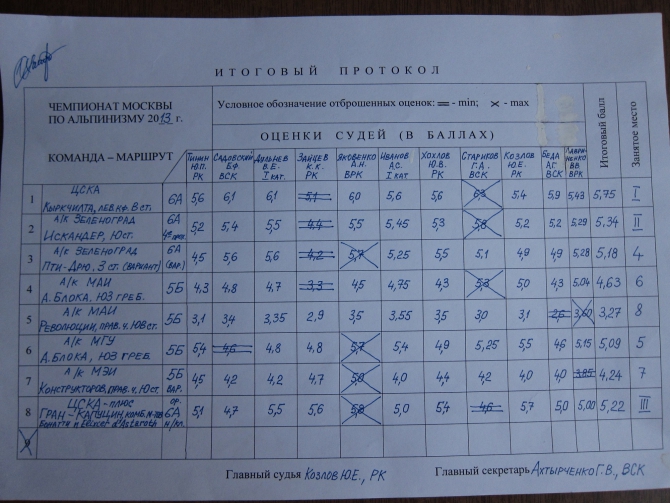 ИТОГОВЫЙ ПРОТОКОЛ
ЧЕМПИОНАТ МОСКВЫ
ПО АЛЬПИНИЗМУ 2013 г.
Условное обозначение отброшенных оценок: - min; × - max
ОЦЕНКИ СУДЕЙ (В БАЛЛАХ)
Итоговый балл
Занятое место
КОМАНДА – МАРШРУТ
Тинин Ю.П. РК
Садовский Б.Ф. ВСК
Дильнев В.Е. I кат.
Зайцев К.К. РК
Яковенко А.Н. ВРК
Иванов А.С. I кат
Хохлов Ю.В. РК
Стариков Г.А. ВСК
Козлов Ю.Е. РК
Беда А.Г. ВСК
В.В. ВРК
1 ЦСКА
Кыркчилта, лев. кф. В ст. 6А 5,6 6,1 6,1 5,1 6,0 5,6 5,6 6,3 5,4 5,9 5,43 5,75 I
2 А/К ЗЕЛЕНОГРАД 6А
Искандер, Ю ст. 5,2 5,4 5,5 4,4 5,5 5,45 5,3 5,8 5,2 5,2 5,29 5,34 II
3 А/К ЗЕЛЕНОГРАД 6А
Пти-Дрю, З ст. (вариант) (ВАР.) 4,5 5,6 5,6 4,2 5,7 5,25 5,5 5,1 4,9 4,9 5,28 5,18 4
4 А/К МАИ
А. Блока, ЮЗ греб. 5Б 4,3 4,8 4,7 3,3 4,5 4,75 4,3 5,3 5,0 4,3 5,04 4,63 6
5 А/К МАИ
Революции, прав. ч. ЮВ ст. 5Б 3,1 3,4 3,35 2,9 3,5 3,55 3,5 3,0 3,1 2,6 3,60 3,27 8
6 А/К МГУ
А. Блока, ЮЗ греб. 5Б 5,4 4,6 4,8 4,8 5,7 5,4 4,9 5,25 5,5 4,6 5,15 5,09 5
7 А/К МЭИ 5Б
Конструкторов, прав. ч. Ю ст. ВАР. 4,5 4,2 4,2 4,7 5,0 4,0 4,4 4,2 4,0 4,0 3,85 4,24 7
8 ЦСКА - плюс ор.
Гран-Капуцин, комб. м-тов 6А 5,1 4,7 5,5 5,6 5,8 5,0 5,4 4,6 5,7 5,0 5,00 5,22 III
Бонатти и d'Astaroth н/кл.
9
Главный судья Козлов Ю.Е., РК Главный секретарь Ахтырченко Г.В., ВСК